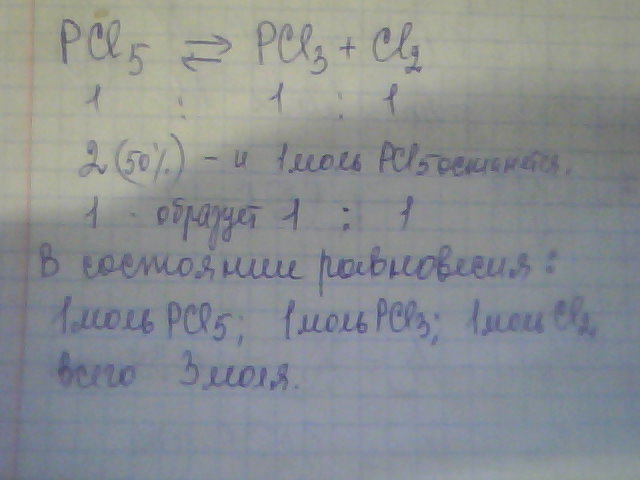 PCl5 ⇌ PCl3 + Cl2
1 : 1 : 1
2 (50%) - и 1 моль PCl5 останется.
1 - образует 1 : 1
В состоянии равновесия:
1 моль PCl5; 1 моль PCl3; 1 моль Cl2
всего 3 моля.